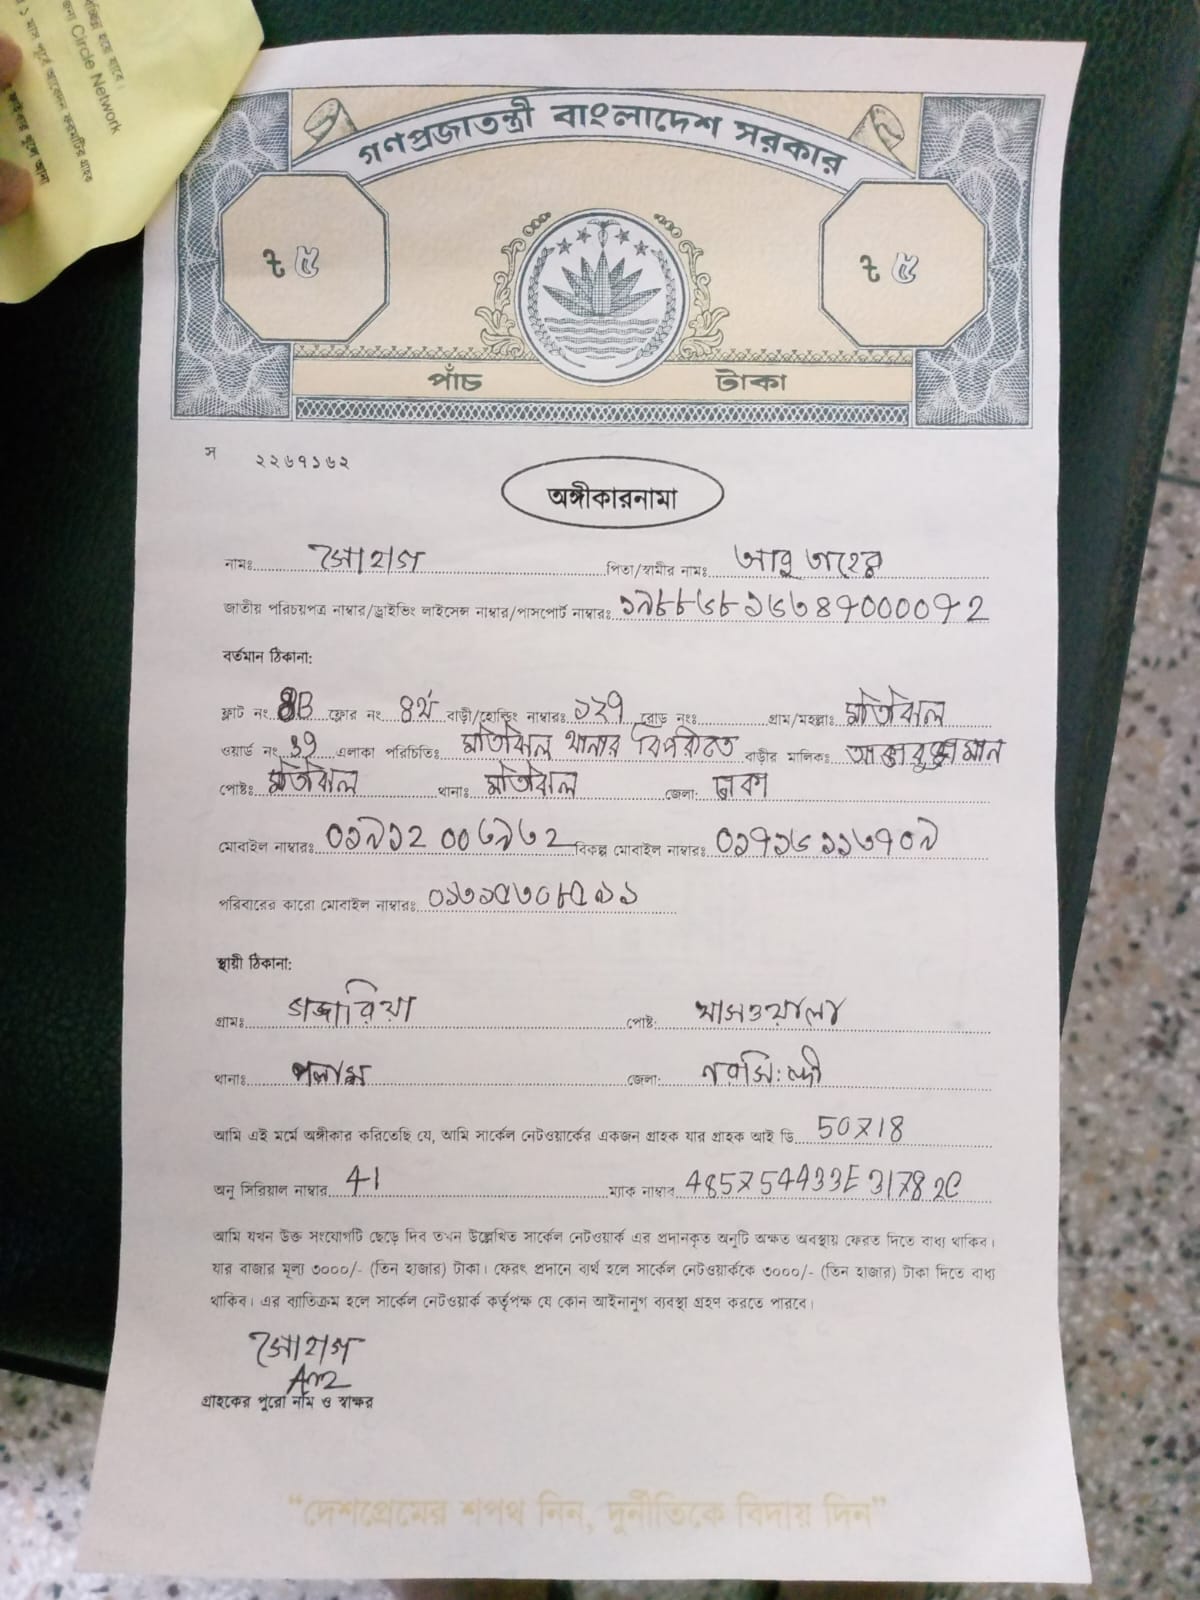 জন্য Circle Network
গণপ্রজাতন্ত্রী বাংলাদেশ সরকার
৳ ৫ ৳ ৫
পাঁচ টাকা
স ২২৬৭১৬২
অঙ্গীকারনামা
নামঃ সোহাগ পিতা/স্বামীর নামঃ আবু তাহের
জাতীয় পরিচয়পত্র নাম্বার/ড্রাইভিং লাইসেন্স নাম্বার/পাসপোর্ট নাম্বারঃ
বর্তমান ঠিকানা:
ফ্লাট নং ফ্লোর নং ৪র্থ বাড়ী/হোল্ডিং নাম্বারঃ ১২৭ রোড নংঃ গ্রাম/মহল্লাঃ মতিঝিল
ওয়ার্ড নং এলাকা পরিচিতিঃ মতিঝিল থানার বিপরিতে বাড়ীর মালিকঃ
পোষ্টঃ মতিঝিল থানাঃ মতিঝিল জেলা: ঢাকা
মোবাইল নাম্বারঃ বিকল্প মোবাইল নাম্বারঃ
পরিবারের কারো মোবাইল নাম্বারঃ
স্থায়ী ঠিকানা:
গ্রামঃ গজারিয়া পোষ্ট:
থানাঃ পলাশ জেলা: নরসিংদী
আমি এই মর্মে অঙ্গীকার করিতেছি যে, আমি সার্কেল নেটওয়ার্কের একজন গ্রাহক যার গ্রাহক আই ডি
অনু সিরিয়াল নাম্বার 41 ম্যাক নাম্বার
আমি যখন উক্ত সংযোগটি ছেড়ে দিব তখন উল্লেখিত সার্কেল নেটওয়ার্ক এর প্রদানকৃত অনুটি অক্ষত অবস্থায় ফেরত দিতে বাধ্য থাকিব।
যার বাজার মূল্য ৩০০০/- (তিন হাজার) টাকা। ফেরৎ প্রদানে ব্যর্থ হলে সার্কেল নেটওয়ার্ককে ৩০০০/- (তিন হাজার) টাকা দিতে বাধ্য
থাকিব। এর ব্যাতিক্রম হলে সার্কেল নেটওয়ার্ক কর্তৃপক্ষ যে কোন আইনানুগ ব্যবস্থা গ্রহণ করতে পারবে।
সোহাগ
গ্রাহকের পুরো নাম ও স্বাক্ষর
“দেশপ্রেমের শপথ নিন, দুর্নীতিকে বিদায় দিন”